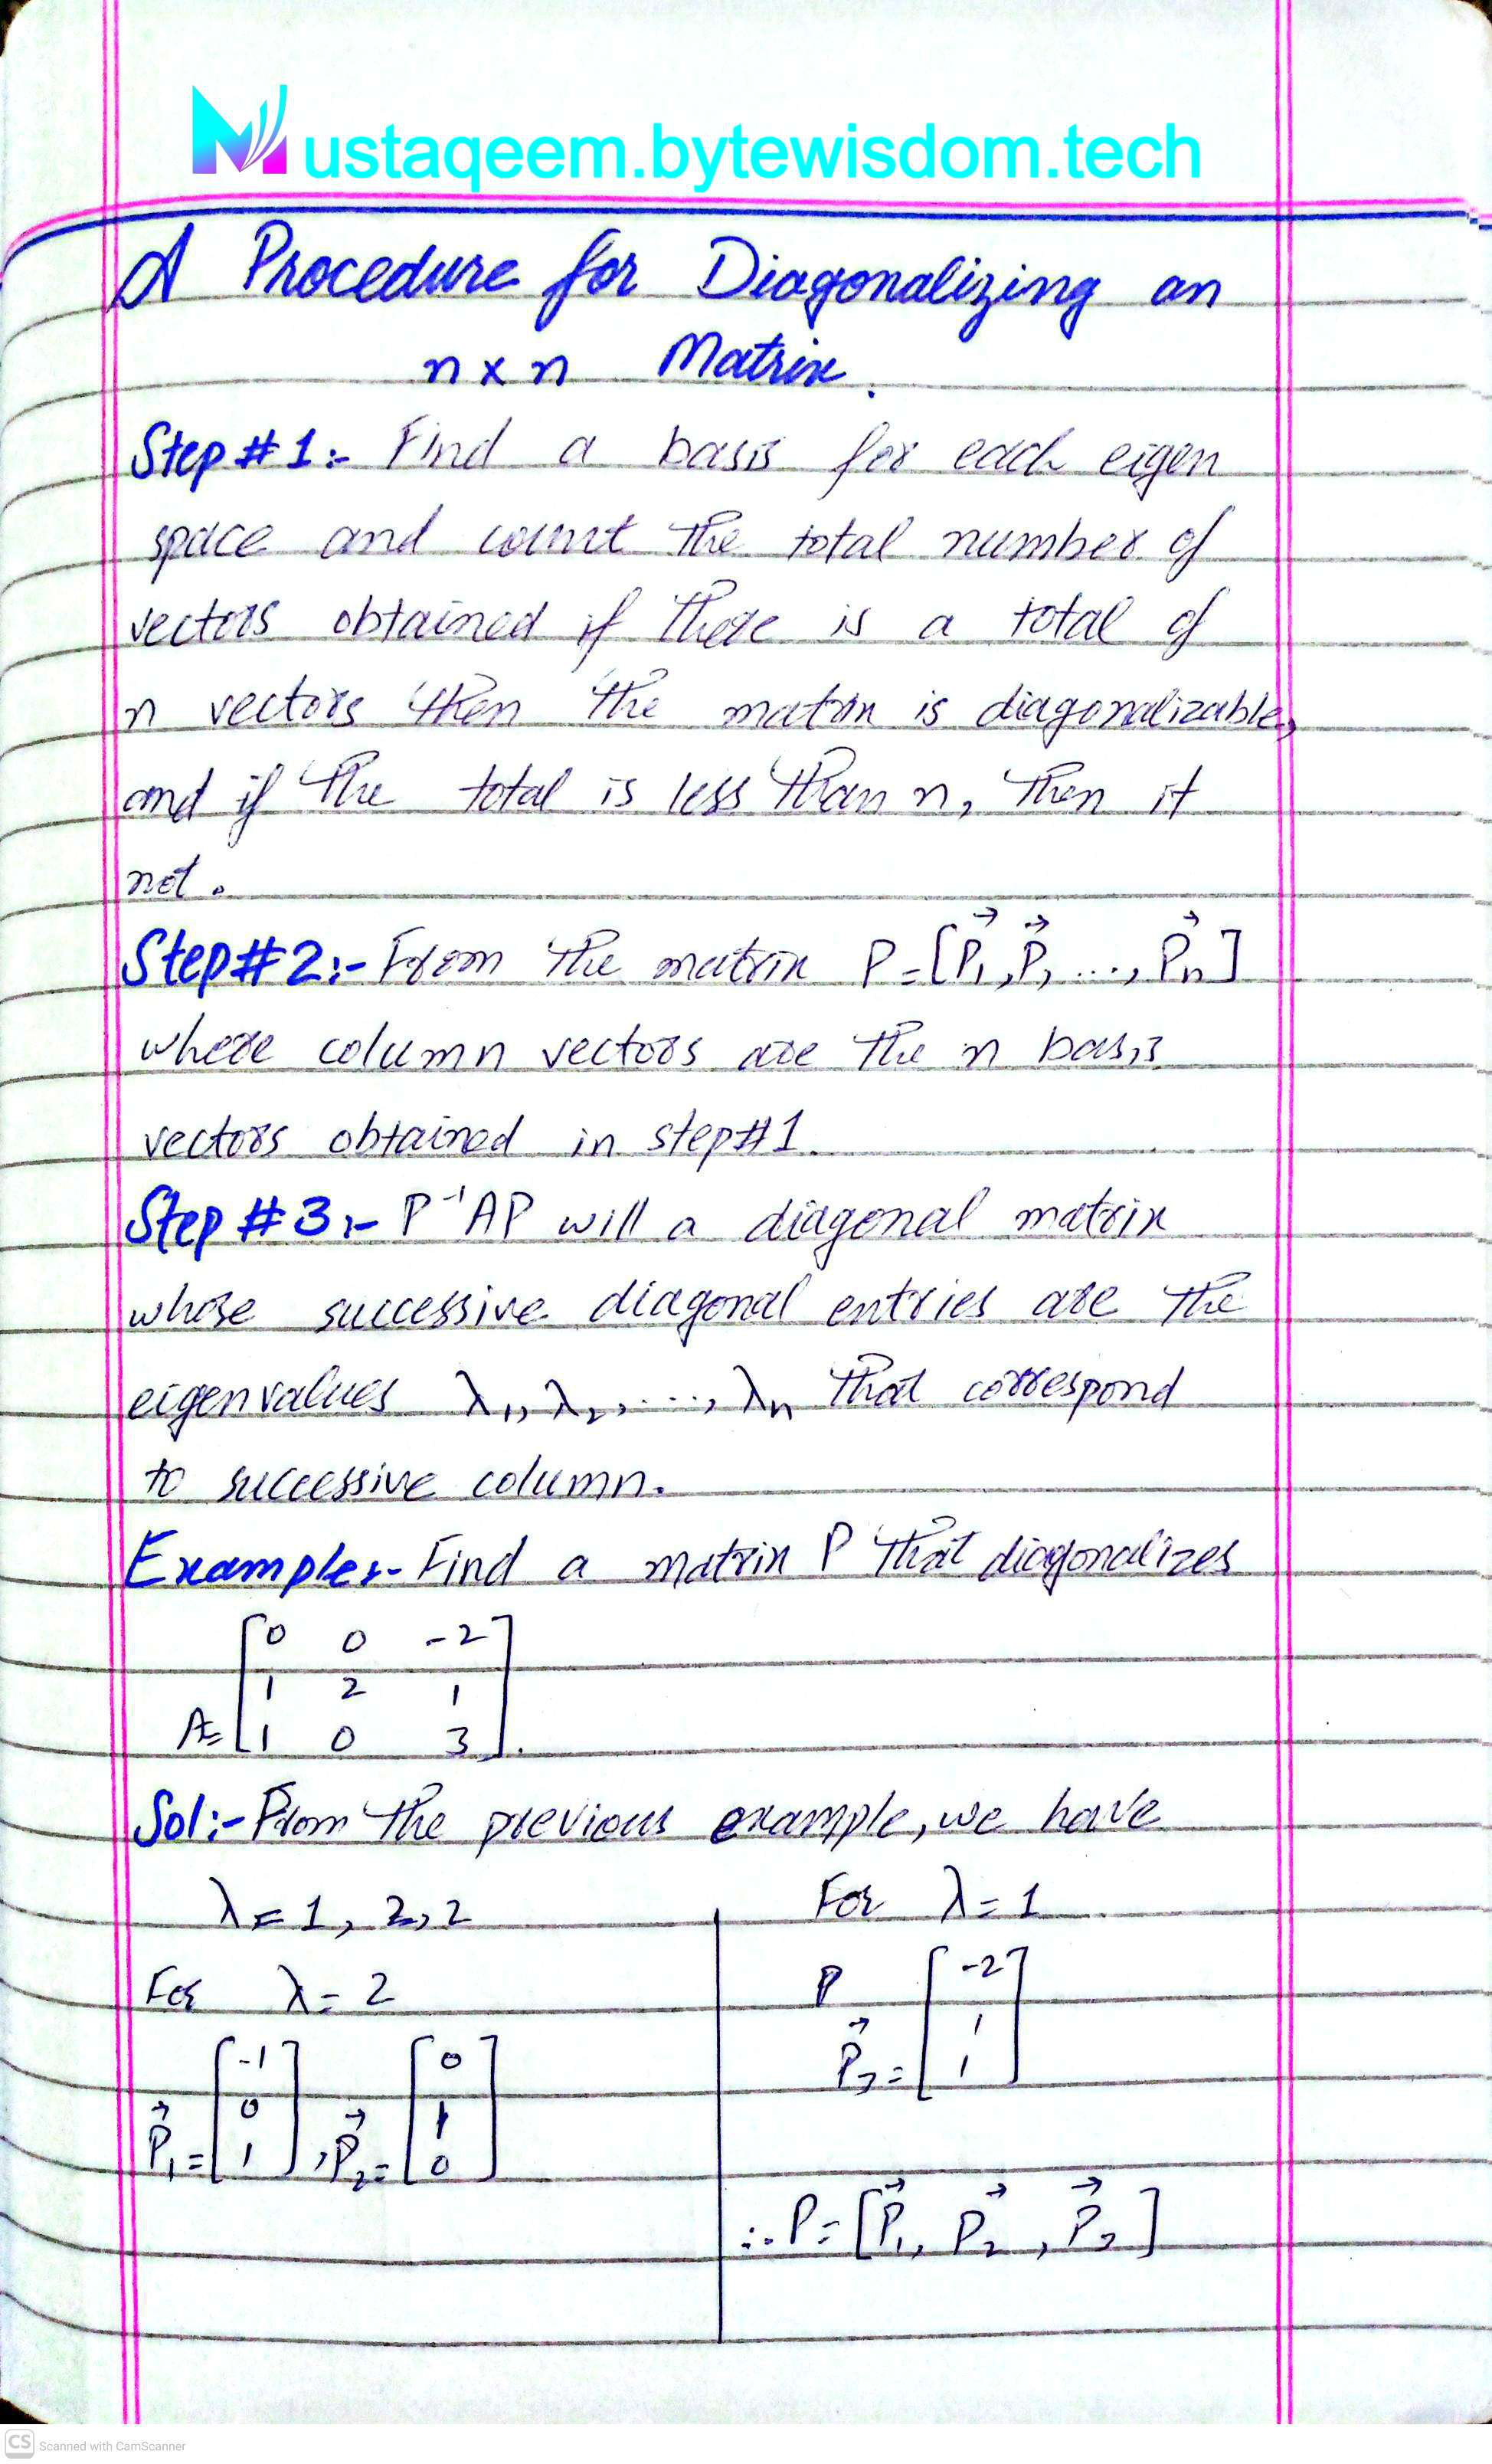 Mustaqeem.bytewisdom.tech
A Procedure for Diagonalizing an
n x n Matrix.
Step#1:- Find a basis for each eigen
space and count the total number of
vectors obtained if there is a total of
n vectors then the matrix is diagonalizable,
and if the total is less than n, then it
not.
Step#2:- From the matrix P=[P⃗₁,P⃗₂,...,P⃗n]
where column vectors are the n basis
vectors obtained in step#1.
Step#3:- P⁻¹AP will a diagonal matrix
whose successive diagonal entries are the
eigenvalues λ₁,λ₂,...,λn that correspond
to successive column.
Example:- Find a matrix P that diagonalizes
A=[0 0 -2
1 2 1
1 0 3].
Sol:- From the previous example, we have
λ=1, 2,2
For λ=2
P⃗₁=[-1
0
1], P⃗₂=[0
1
0]
For λ=1
P
P⃗₃=[-2
1
1]
∴P=[P⃗₁, P⃗₂, P⃗₃]
CS Scanned with CamScanner